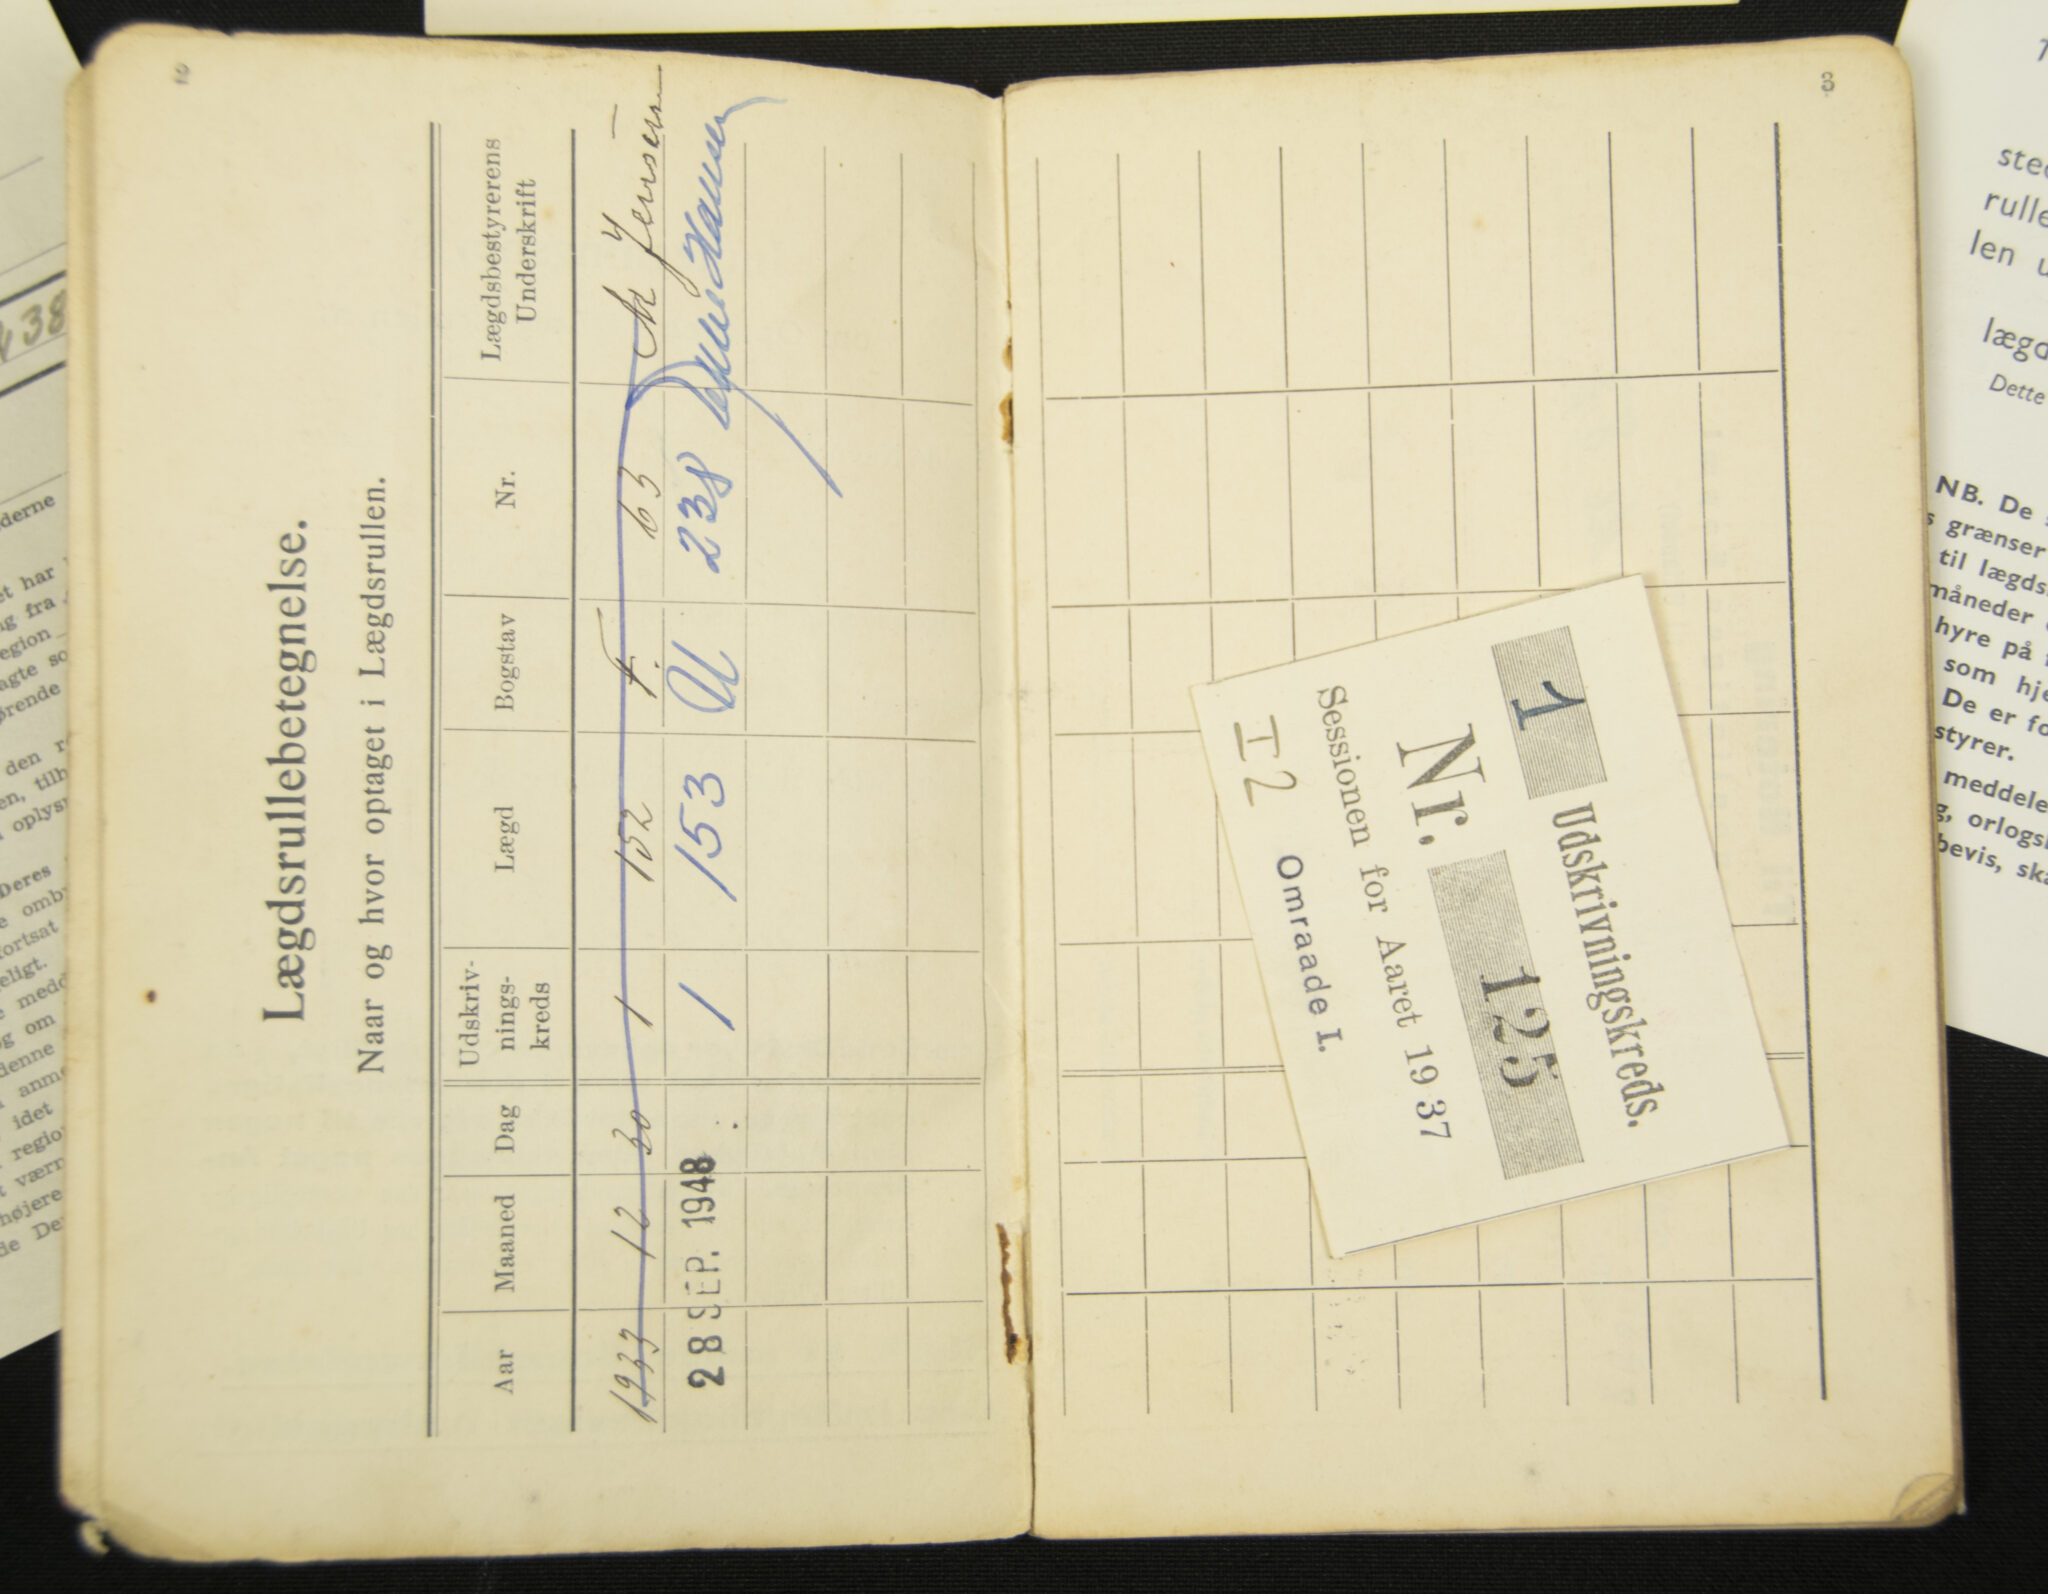 Lægdsrullebetegnelse.
Naar og hvor optaget i Lægdsrullen.
Aar Maaned Dag Udskriv-nings-kreds Lægd Bogstav Nr. Lægdsbestyrerens Underskrift
1933 12 30 1 152 F. 63 Jensen
28 SEP. 1948 1 153 U 238 Hansen
1 Udskrivningskreds.
Nr. 125
Sessionen for Aaret 1937
I 2 Omraade I.
38
derne
et har
ng fra
egion
agte so
ørende
den r
en, tilh
oplys
Deres
e omb
fortsat
eligt.
e medd
og om
denne
anme
idet
regio
t værn
højere
de De
sted
rulle
len u
lægd
Dette
NB. De s
s grænser
til lægds
måneder
hyre på
som hje
De er fo
styrer.
meddele
g, orlogs
bevis, ska